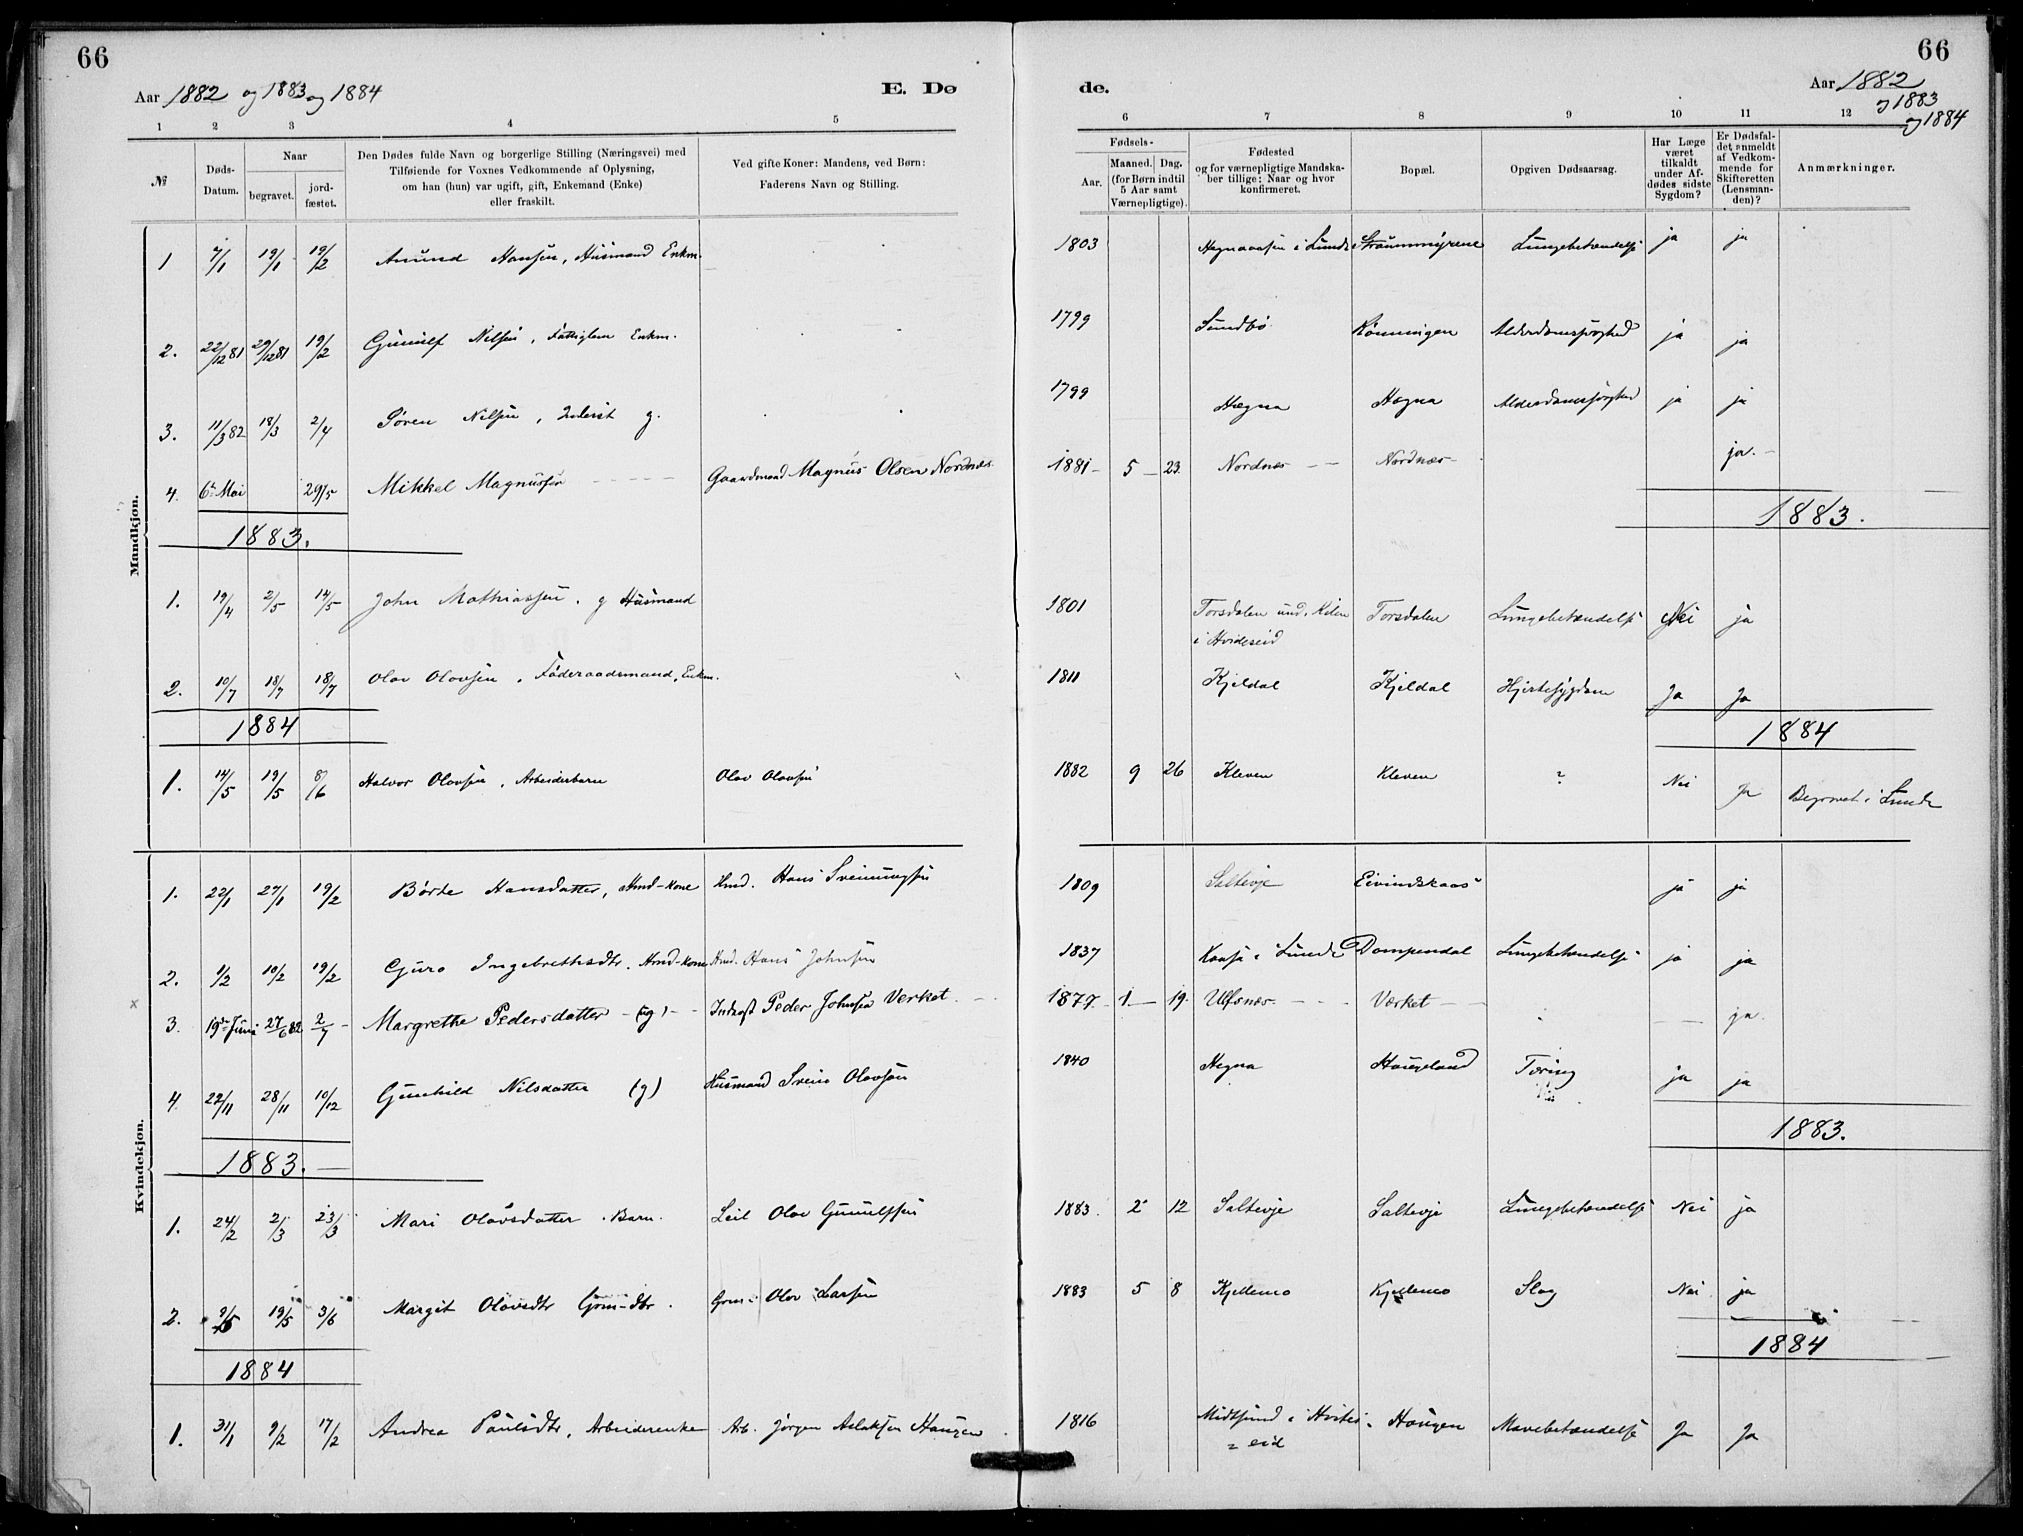 66
Aar 1882 og 1883 og 1884
E. Dø
1 2 3 4 5
№
Døds-Datum.
Naar
begravet.
jord-fæstet.
Den Dødes fulde Navn og borgerlige Stilling (Næringsvei) med
Tilføiende for Voxnes Vedkommende af Oplysning,
om han (hun) var ugift, gift, Enkemand (Enke)
eller fraskilt.
Ved gifte Koner: Mandens, ved Børn:
Faderens Navn og Stilling.
Mandkjøn.
1 7/1 19/1 19/2 Amund Hansen, Husmand Enkm.
2. 22/12 81 29/12 81 19/2 Gunulf Nilsen, Fattiglem Enkm.
3. 11/3 82 18/3 2/4 Søren Nilsen, Inderst g.
4. 6te Mai 29/5 Mikkel Magnussen Gaardmand Magnus Olsen Nordnæs
1883.
1. 19/4 2/5 14/5 John Mathiassen. g Husmand
2. 10/7 18/7 18/7 Olav Olavsen, Føderaadsmand, Enkm.
1884
1. 14/5 19/5 8/6 Halvor Olavsen, Arbeiderbarn Olav Olavsen
Kvindekjøn.
1. 22/1 27/1 19/2 Børte Hansdatter, Hmd-kone Hmd. Hans Sveinungsen
2. 1/2 10/2 19/2 Guro Ingebrethsdtr. Hmd-kone Hmd. Hans Johnsen
x 3. 19de Juni 27/6 82 2/7 Margrethe Pedersdatter (ug) Peder Johnsen Verket
4 22/11 28/11 10/12 Gunhild Nilsdatter (g) Husmand Svein Olavsøn
1883.
1. 24/2 2/3 23/3 Mari Olavsdatter. Barn. Leil Olav Gunulfsen
2. 9/5 19/5 3/6 Margit Olavsdtr Grm-dtr. Grm. Olav Larsen
1884
1. 31/1 9/2 17/2 Andrea Paulsdtr, Arbeiderenke Arb. Jørgen Aslaksen Haugen
66
de.
Aar 1882
og 1883
og 1884
6 7 8 9 10 11 12
Fødsels-
Aar.
Maaned. Dag.
(for Børn indtil
5 Aar samt
Værnepligtige).
Fødested
og for værnepligtige Mandska-
ber tillige: Naar og hvor
konfirmeret.
Bopæl.
Opgiven Dødsaarsag.
Har Læge
været
tilkaldt
under Af-
dødes sidste
Sygdom?
Er Dødsfal-
det anmeldt
af Vedkom-
mende for
Skifteretten
(Lensman-
den)?
Anmærkninger.
1803 Hegnaaasen i Lunde Straummyrene Lungebetændelse ja ja
1799 Sundbø Rønningen Alderdomssvaghed ja ja
1799 Hægna Hægna Alderdomssvaghed ja ja
1881 5 23. Nordnæs Nordnæs ja.
1883.
1801 Torsdalen und. Kilen
i Hvideseid Torsdalen Lungebetændelse Nei ja
1811 Kjeldal Kjeldal Hjertesygdom Ja Ja
1884
1882 9 26 Kleven Kleven ? Nei Ja Begravet i Lunde
1809 Saltevje Eivindskaas ja ja
1837 Kaasa i Lunde Dompendal Lungebetændelse ja ja
1877 1 19. Ulfsnæs Værket ja.
1840 Hegna Haugeland Tæring ja ja
1883.
1883. 2 12 Saltevje Saltevje Lungebetændelse Nei ja
1883 5 8 Kjellemo Kjellemo Slag Nei ja
1884
1816 Midtsund i Hvites-
=eid Haugen Mavebetændelse Ja Ja